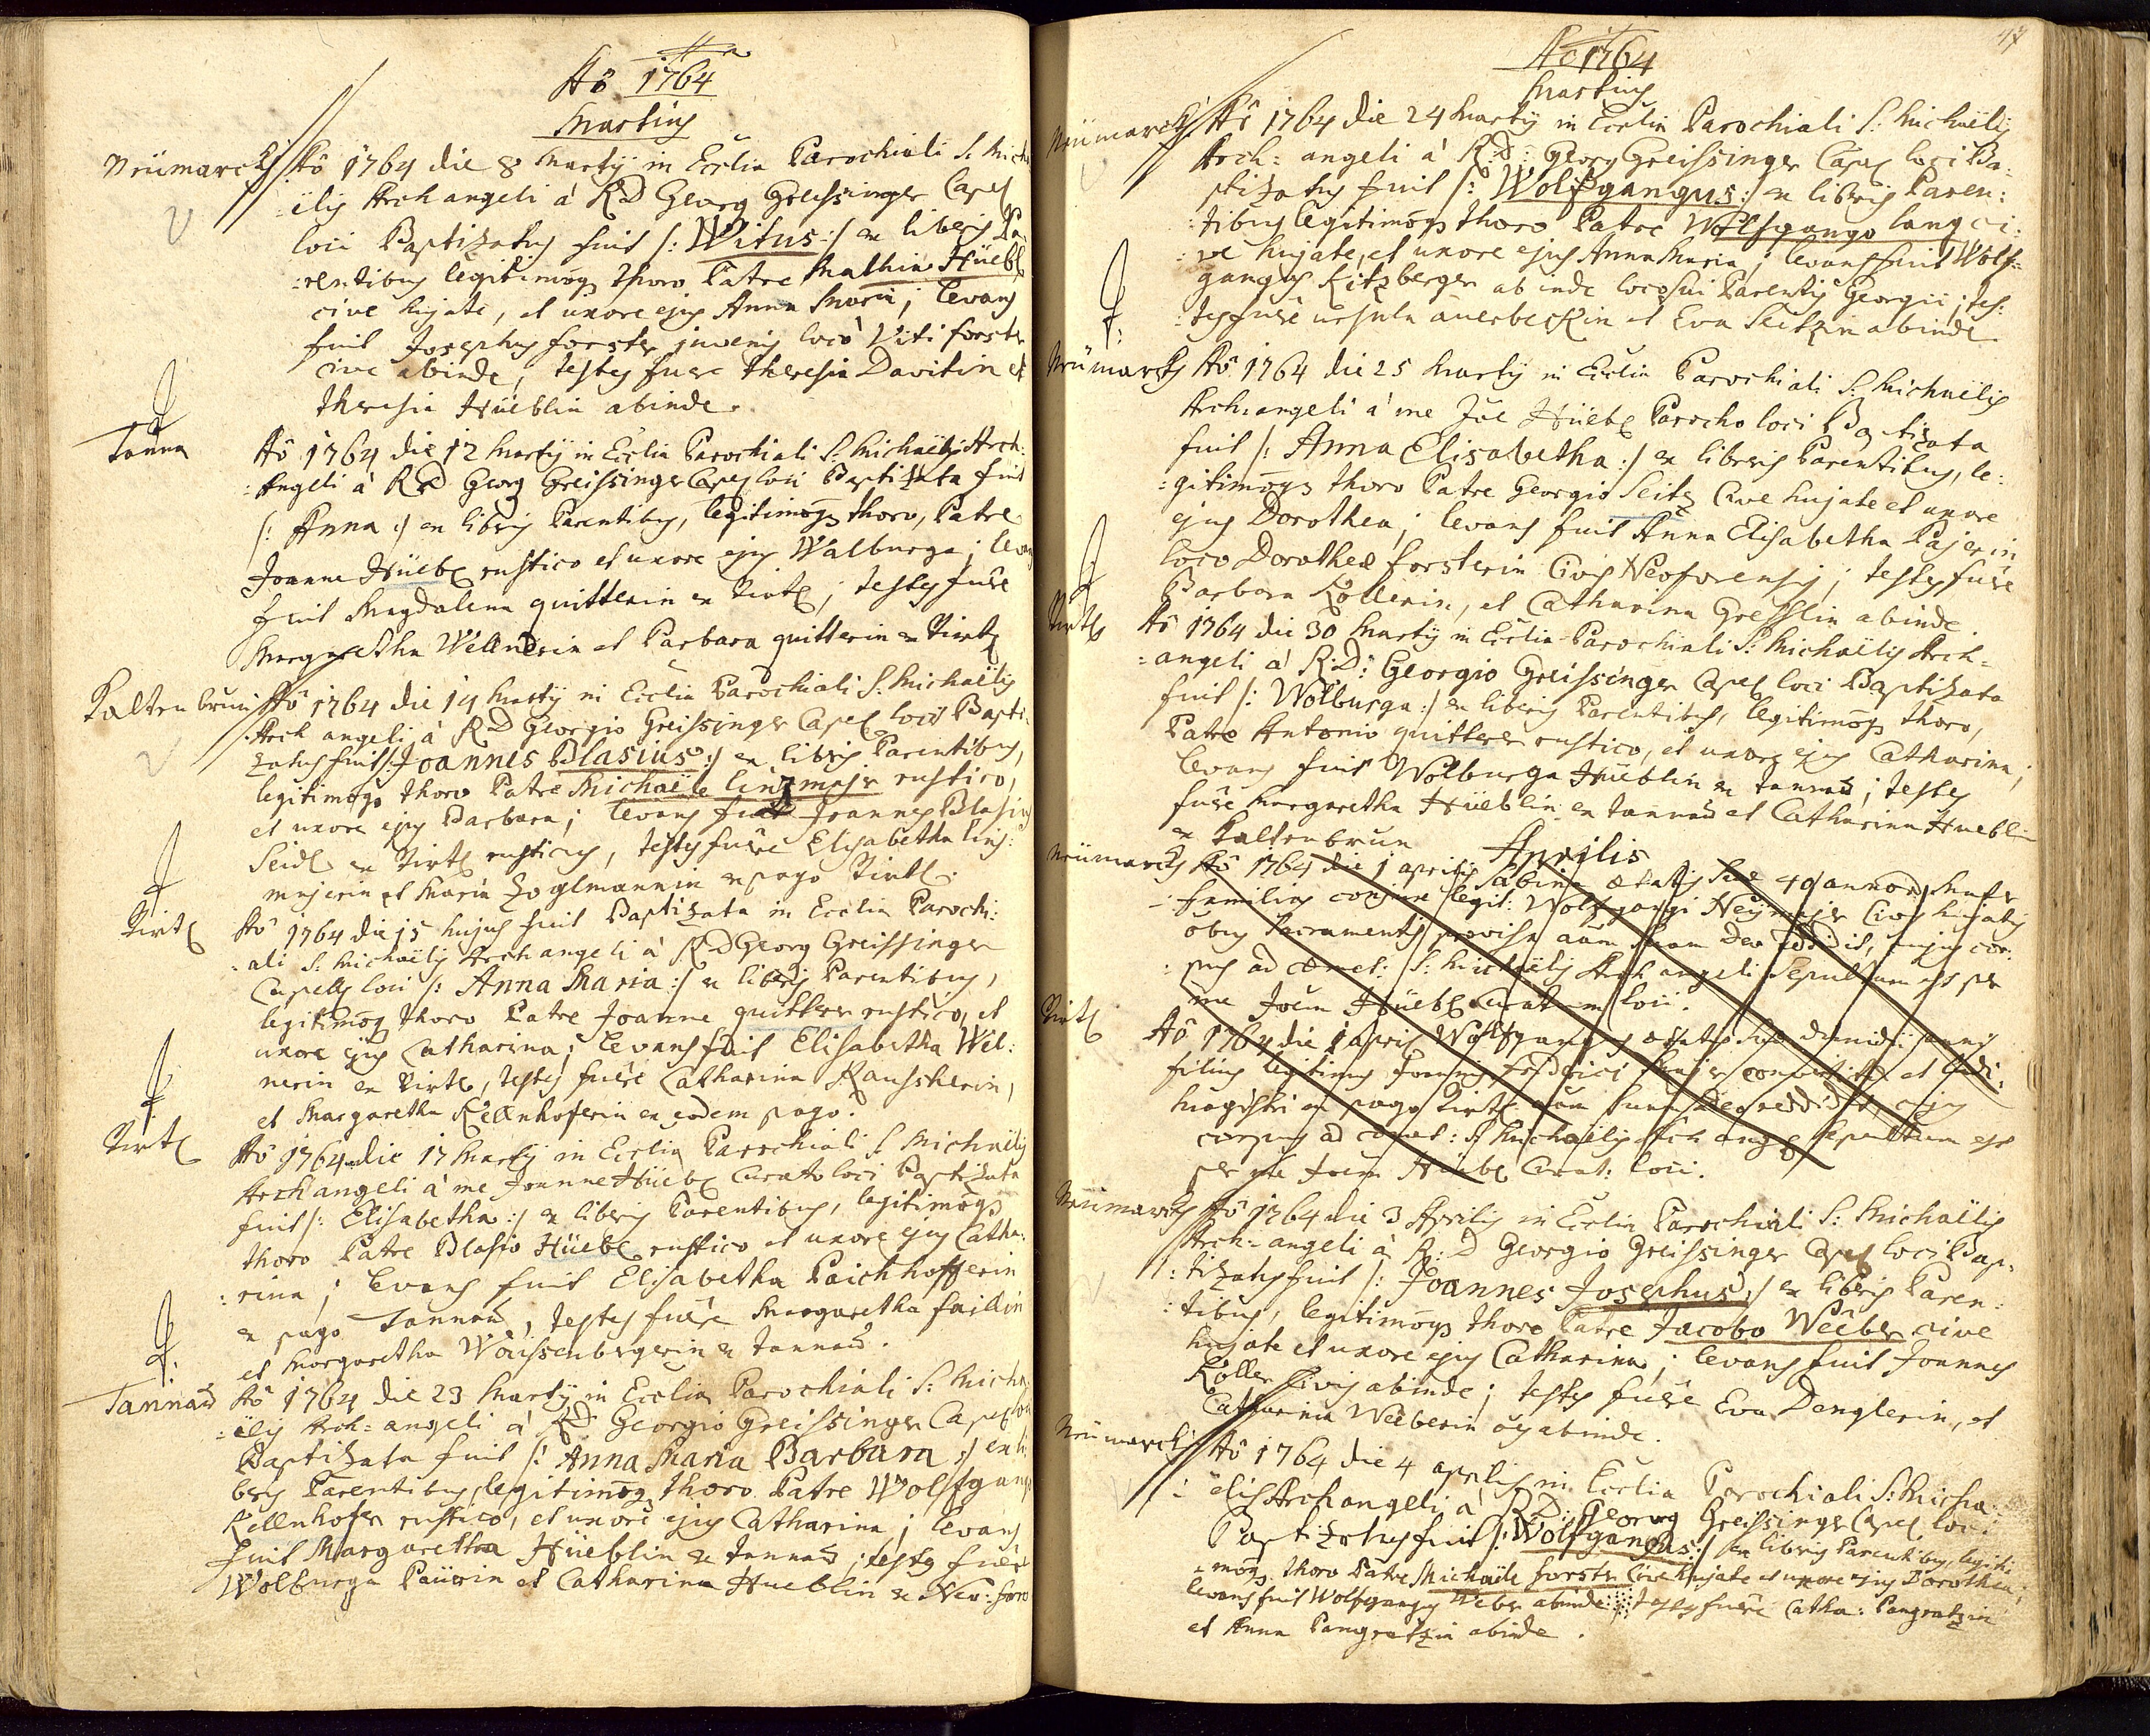 Aõ 1764
Martius
Neümarckh Aõ 1764 die 8 Martij in Ecclia Parochiali S: Micha
:ëlis Archangeli à R.D Georg Greissinger Capel
loci Baptizatus fuit /: Witus :/ ex liberis Pa:
:rentibus legitimoq thoro Patre Mathia Hüebl
cive hujate, et uxore ejus Anna Maria; levans
fuit Josephus forster juvenis loco Viti forster
cive abinde, testes fuere Theresia Davitin et
Theresia Hüeblin abinde.
Tanna Aõ 1764 die 12 Martij in Ecclia Parochiali S. Michaëlis Arch:
:Angeli à R.D Georg Greissinger Capel loci Baptizata fuit
/: Anna :/ ex libris Parentibus, legitimoqs thoro, Patre
Joanne Hüebl rustico et uxore ejus Walburga; levans
fuit Magdalena quitterin ex Tirtl; testes fuêre
Margaretha Wellnerin et Barbara quitterin ex Tirtl
Kaltenbrun Aõ 1764 die 14 Martij in Ecclia Parochiali S. Michaëlis
Arch angeli à R.D Georgio Greissinger Capel loci Bapti:
zatus fuit /: Joannes Blasius :/ ex libris Parentibus,
legitimoqs thoro Patre Michaële linzmajr rustico,
et uxore ejus Barbara; levans fuit Joannes Blasius
Seidl ex Tirtl rusticus, testes fuêre Elisabetha lins:
majerin et Maria Zoglmannin ex pago Tirtl.
Tirtl Aõ 1764 die 15 hujus fuit Baptizata in Ecclia Parochi:
:ali S: Michaëlis Archangeli à R.D Georg Greissinger
Capells loci /: Anna Maria :/ ex liberis Parentibus,
legitimoq thoro Patre Joanne quitter rustico, et
uxore ejus Catharina; levans fuit Elisabetha Wel:
nerin ex Tirtl, testes fuêre Catharina Rausherin,
et Margaretha Kellnhoferin ex eodem pago.
Tirtl Aõ 1764 die 17 Martij in Ecclia Parochiali S. Michaëlis
Archangeli à me Joanne Hüebl Curato loci Baptizata
fuit /: Elisabetha :/ ex liberis Parentibus, legitimoqs
thoro Patre Blasio Hüebl rustico et uxore ejus Catha:
:rina; levans fuit Elisabetha Paichhofferin
ex pago Tannad, testes fuêre Margaretha failin
et Margaretha Waissenbergerin ex tannad.
Tannad Aõ 1764 die 23 Martij in Ecclia Parochiali S: Micha
:ëlis Arch=angeli à R.D: Georgio Greissinger Capel loci
Baptizata fuit /: Anna Maria Barbara :/ ex li:
beris Parentibus, legitimoq thoro Patre Wolfgango
Kellnhofer rustico, et uxore ejus Catharina; levans
fuit Margaretha Hüeblin ex tannad; testes fuêre
Wolburga Paürin et Catharina Hueblin ex Neo:foro
47
Aõ 1764
Martius
Neümarckh Aõ 1764 die 24 Martij in Ecclia Parochiali S: Michaëlis
Arch=angeli à R:D: Georg Greissinger Capel loci Ba:
ptizatus fuit /: Wolfgangus :/ ex libris Paren:
:tibus legitimoqs thoro Patre Wolfgango lang ci:
:ve hujate, et uxore ejus Anna Maria; levans fuit Wolf=
gangus Kitzberger ab inde loco sui Parentis Georgii; tes:
:tes fuêre ursula auerbeckin et Eva Seitzin abinde.
Neümarckh Aõ 1764 die 25 Martij in Ecclia Parochiali S: Michaëlis
Arch:angeli à me Joe Hüebl Parocho loci Baptizata
fuit /: Anna Elisabetha :/ ex liberis Parentibus, le:
:gitimoqs thoro Patre Georgio Seitz Cive hujate et uxore
ejus Dorothea; levans fuit Anna Elisabetha Pajerin
loco Dorotheæ forsterin Civis Neoforensis; testes fuêre
Barbara Kollerin, et Catharina Gresslin abinde.
Tirtl Aõ 1764 die 30 Martij in Ecclia Parochiali S: Michaëlis Arch=
=angeli à R:D: Georgio Greissinger Capel loci Baptizata
fuit /: Wolburga :/ ex liberis Parentibus, legitimoqs thoro,
Patre Antonio quitterer rustico, et uxore ejus Catharina;
levans fuit Wolburga Hüeblin ex tannad; testes
fuêre Margaretha Hüeblin ex tannad et Catharina Hueblin
ex Kaltenbrun
Aprilis
Neümarckh Aõ 1764 die 1 aprilis Sabina ætatis suæ 40 annor Mater
familias conjunx legit: Wolfgangi Neümajer Civis hujatis
oibus Sacramentis provisa aãm suam Deo reddidit, cujus cor:
:pus ad cæmet: S: Michaëlis Arch angeli Sepultum est per
me Joem Hüebl Curatum loci.
Tirtl Aõ 1764 die 1 april Wolfgangus ætatis suæ dimidii anni
filius legitimus Joannis friderici Majer et Ludi:
Magistri ex pago Tirtl aãm suam Deo reddidit, cujus
corpus ad cæmet: S: Michaëlis Arch angeli Sepultum est
per me Joem Hüebl Curat: loci.
Neümarckh Aõ 1764 die 3 Aprilis in Ecclia Parochiali S: Michaëlis
Arch=angeli à R:D Georgio Greissinger Capel loci Bap:
:tizatus fuit /: Joannes Josephus :/ ex liberis Paren:
:tibus, legitimoqs thoro Patre Jacobo Weeber cive
hujate et uxore ejus Catharina; levans fuit Joannes
Koller Civis abinde; testes fuêre Eva Denglerin, et
Catharina Weeberin oes abinde.
Neümarckh Aõ 1764 die 4 aprilis in Ecclia Parochiali S: Micha:
:ëlis Archangeli à R.D: Georg Greissinger Capel loci
Baptizatus fuit /: Wolfgangus :/ ex libris Parentibus, legiti:
=moqs thoro Patre Michaële forster Cive hujate et uxore ejus Dorothea;
levans fuit Wolfgangus Weber abinde; testes fuêre Catha: Pangratzin
et Anna Pangratzin abinde.